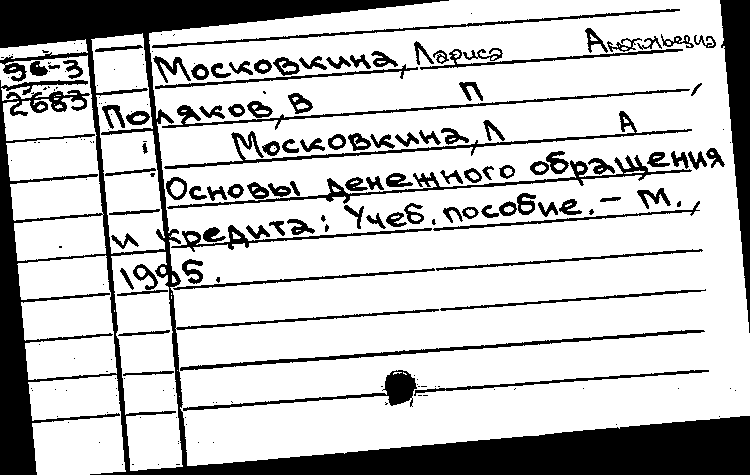 96-3 Московкина, Лариса Анатольевна
2683 Поляков, В П
Московкина, Л А
Основы денежного обращения
и кредита: Учеб. пособие. – М.,
1995.